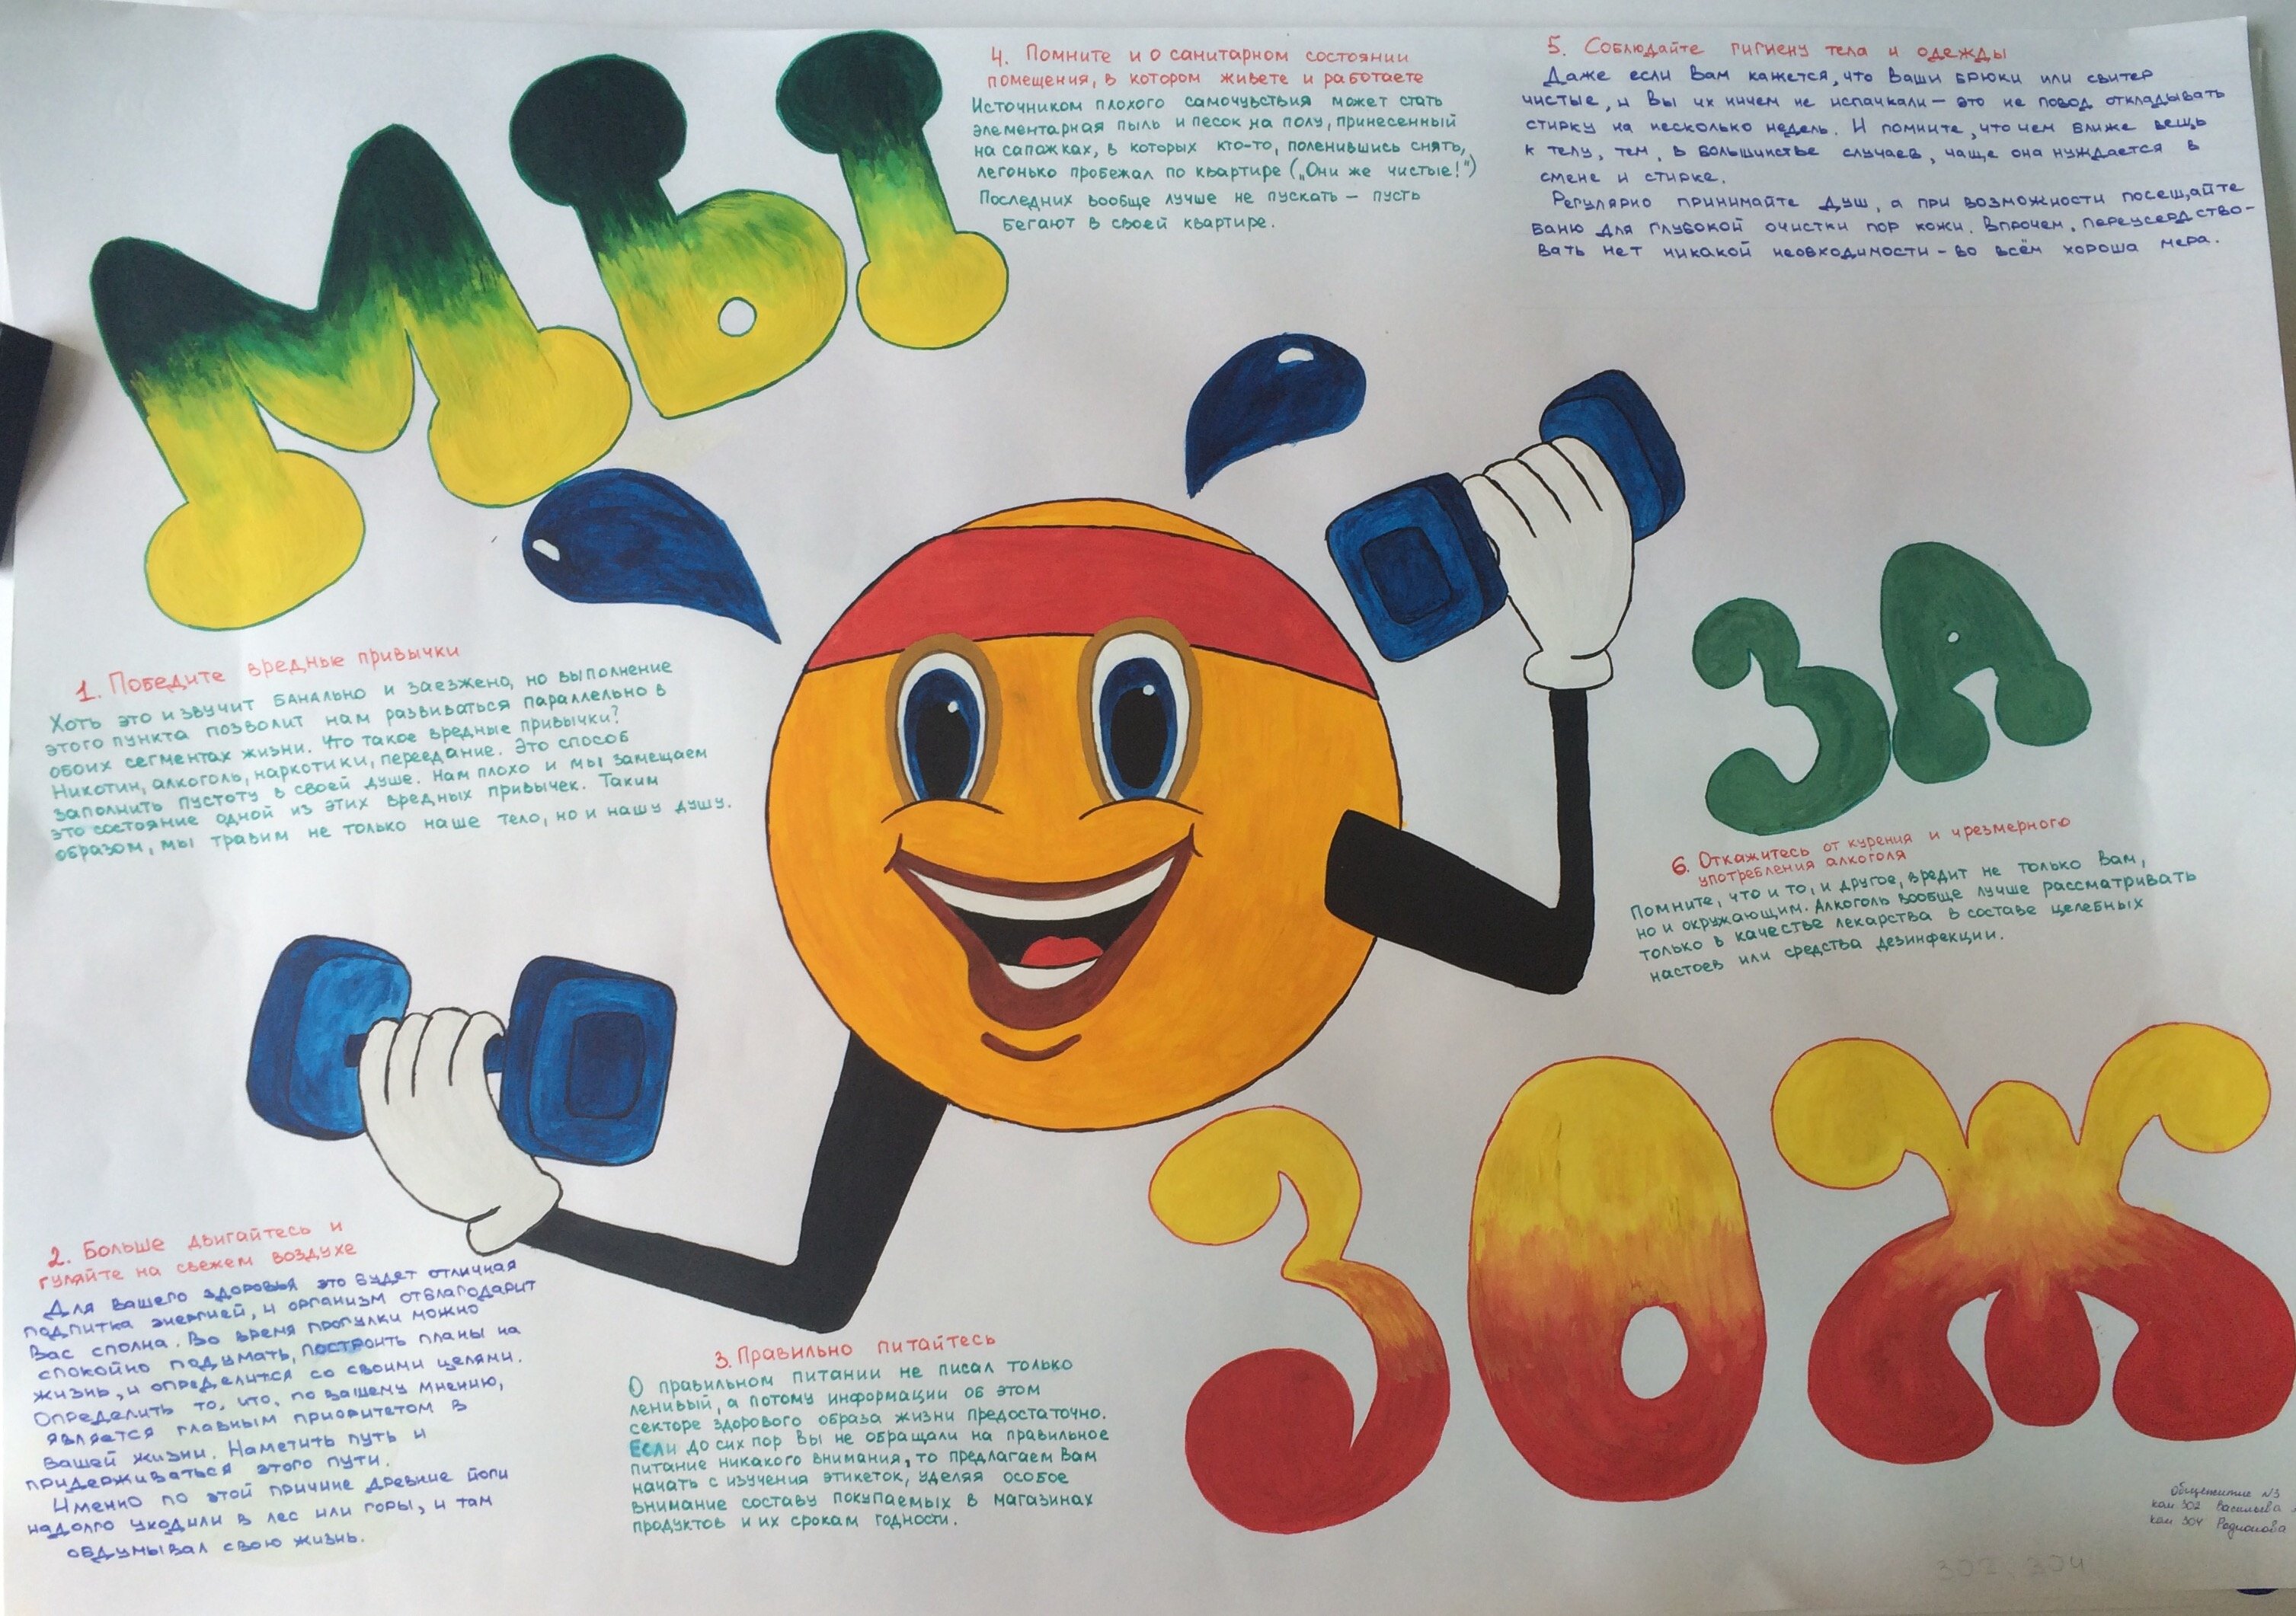 МЫ
ЗА
ЗОЖ
1. Победите вредные привычки
Хоть это и звучит банально и заезжено, но выполнение
этого пункта позволит нам развиваться параллельно в
обоих сегментах жизни. Что такое вредные привычки?
Никотин, алкоголь, наркотики, переедание. Это способ
заполнить пустоту в своей душе. Нам плохо и мы замещаем
это состояние одной из этих вредных привычек. Таким
образом, мы травим не только наше тело, но и нашу душу.
2. Больше двигайтесь и
гуляйте на свежем воздухе
Для вашего здоровья это будет отличная
подпитка энергией, и организм отблагодарит
Вас сполна. Во время прогулки можно
спокойно подумать, построить планы на
жизнь, и определится со своими целями.
Определить то, что, по вашему мнению,
является главным приоритетом в
вашей жизни. Наметить путь и
придерживаться этого пути.
Именно по этой причине древние йоги
надолго уходили в лес или горы, и там
обдумывал свою жизнь.
3. Правильно питайтесь
О правильном питании не писал только
ленивый, а потому информации об этом
секторе здорового образа жизни предостаточно.
Если до сих пор Вы не обращали на правильное
питание никакого внимания, то предлагаем Вам
начать с изучения этикеток, уделяя особое
внимание составу покупаемых в магазинах
продуктов и их срокам годности.
4. Помните и о санитарном состоянии
помещения, в котором живете и работаете
Источником плохого самочувствия может стать
элементарная пыль и песок на полу, принесенный
на сапожках, в которых кто-то, поленившись снять,
легонько пробежал по квартире („Они же чистые!")
Последних вообще лучше не пускать – пусть
бегают в своей квартире.
5. Соблюдайте гигиену тела и одежды
Даже если Вам кажется, что Ваши брюки или свитер
чистые, и Вы их ничем не испачкали – это не повод откладывать
стирку на несколько недель. И помните, что чем ближе вещь
к телу, тем, в большинстве случаев, чаще она нуждается в
смене и стирке.
Регулярно принимайте душ, а при возможности посещайте
баню для глубокой очистки пор кожи. Впрочем, переусердство-
вать нет никакой необходимости – во всём хороша мера.
6. Откажитесь от курения и чрезмерного
употребления алкоголя
Помните, что и то, и другое, вредит не только Вам,
но и окружающим. Алкоголь вообще лучше рассматривать
только в качестве лекарства в составе целебных
настоев или средства дезинфекции.
Общежитие №3
ком 302 Васильева
ком 304 Родионова
302, 304